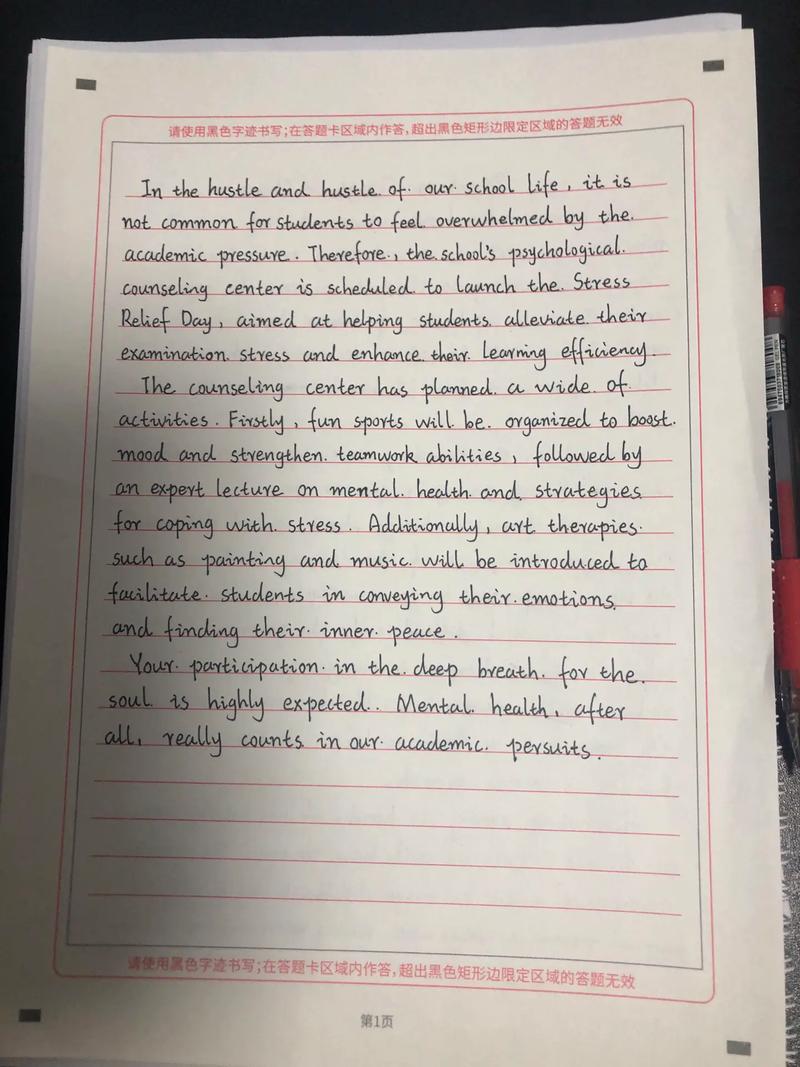 请使用黑色字迹书写;在答题卡区域内作答,超出黑色矩形边限定区域的答题无效
In the hustle and hustle of our school life, it is
not common for students to feel overwhelmed by the
academic pressure. Therefore, the school's psychological
counseling center is scheduled to launch the Stress
Relief Day, aimed at helping students alleviate their
examination stress and enhance their learning efficiency.
The counseling center has planned a wide of
activities. Firstly, fun sports will be organized to boost
mood and strengthen teamwork abilities, followed by
an expert lecture on mental health and strategies
for coping with stress. Additionally, art therapies
such as painting and music will be introduced to
facilitate students in conveying their emotions
and finding their inner peace.
Your participation in the deep breath for the
soul is highly expected. Mental health, after
all, really counts in our academic persuits.
请使用黑色字迹书写;在答题卡区域内作答,超出黑色矩形边限定区域的答题无效
第1页